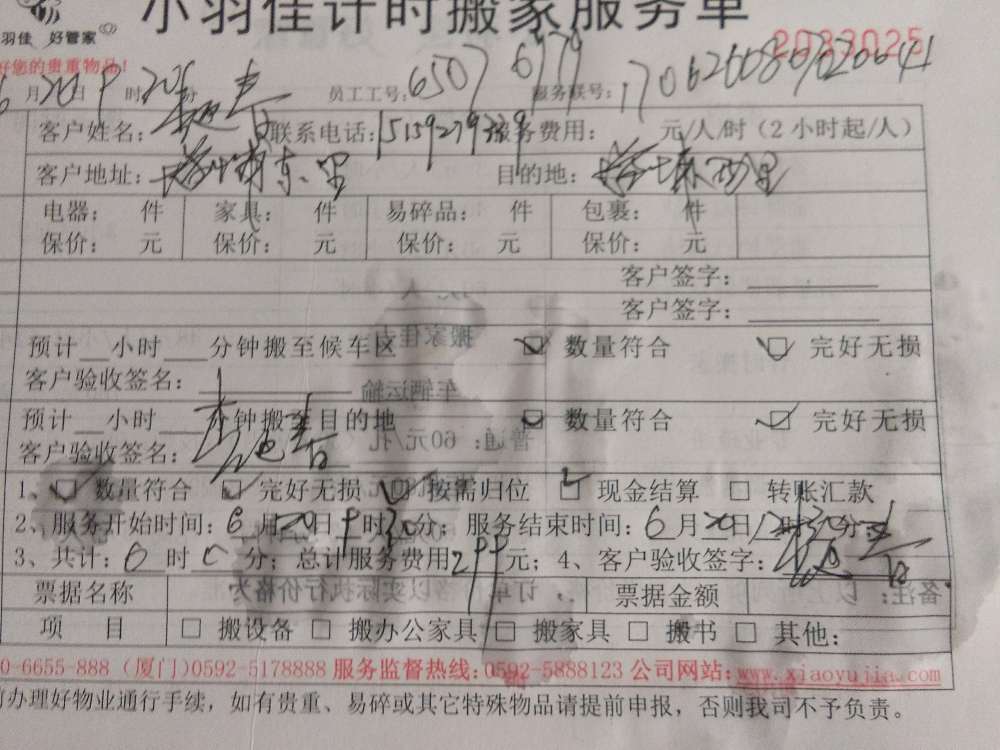 小羽佳计时搬家服务单
羽佳 好管家 2033025
好您的贵重物品!
6月20日9时20分 员工工号: 6507 6979 服务联号: 1706200809020041
客户姓名: 联系电话: 服务费用: 元/人/时（2小时起/人）
客户地址: 东里 目的地: 西里
电器: 件 家具: 件 易碎品: 件 包裹: 件
保价: 元 保价: 元 保价: 元 保价: 元
客户签字:
客户签字:
预计__小时___分钟搬至候车区 数量符合 完好无损
客户验收签名:
预计__小时___分钟搬至目的地 数量符合 完好无损
客户验收签名:
1、数量符合 完好无损 按需归位 现金结算 转账汇款
2、服务开始时间: 6月20日9时20分; 服务结束时间: 6月20日12时30分
3、共计: 0时0分; 总计服务费用299元; 4、客户验收签字:
票据名称 票据金额
项 目 搬设备 搬办公家具 搬家具 搬书 其他:
0-6655-888 (厦门)0592-5178888 服务监督热线: 0592-5888123 公司网站: www.xiaoyujia.com
办理好物业通行手续，如有贵重、易碎或其它特殊物品请提前申报，否则我司不予负责。